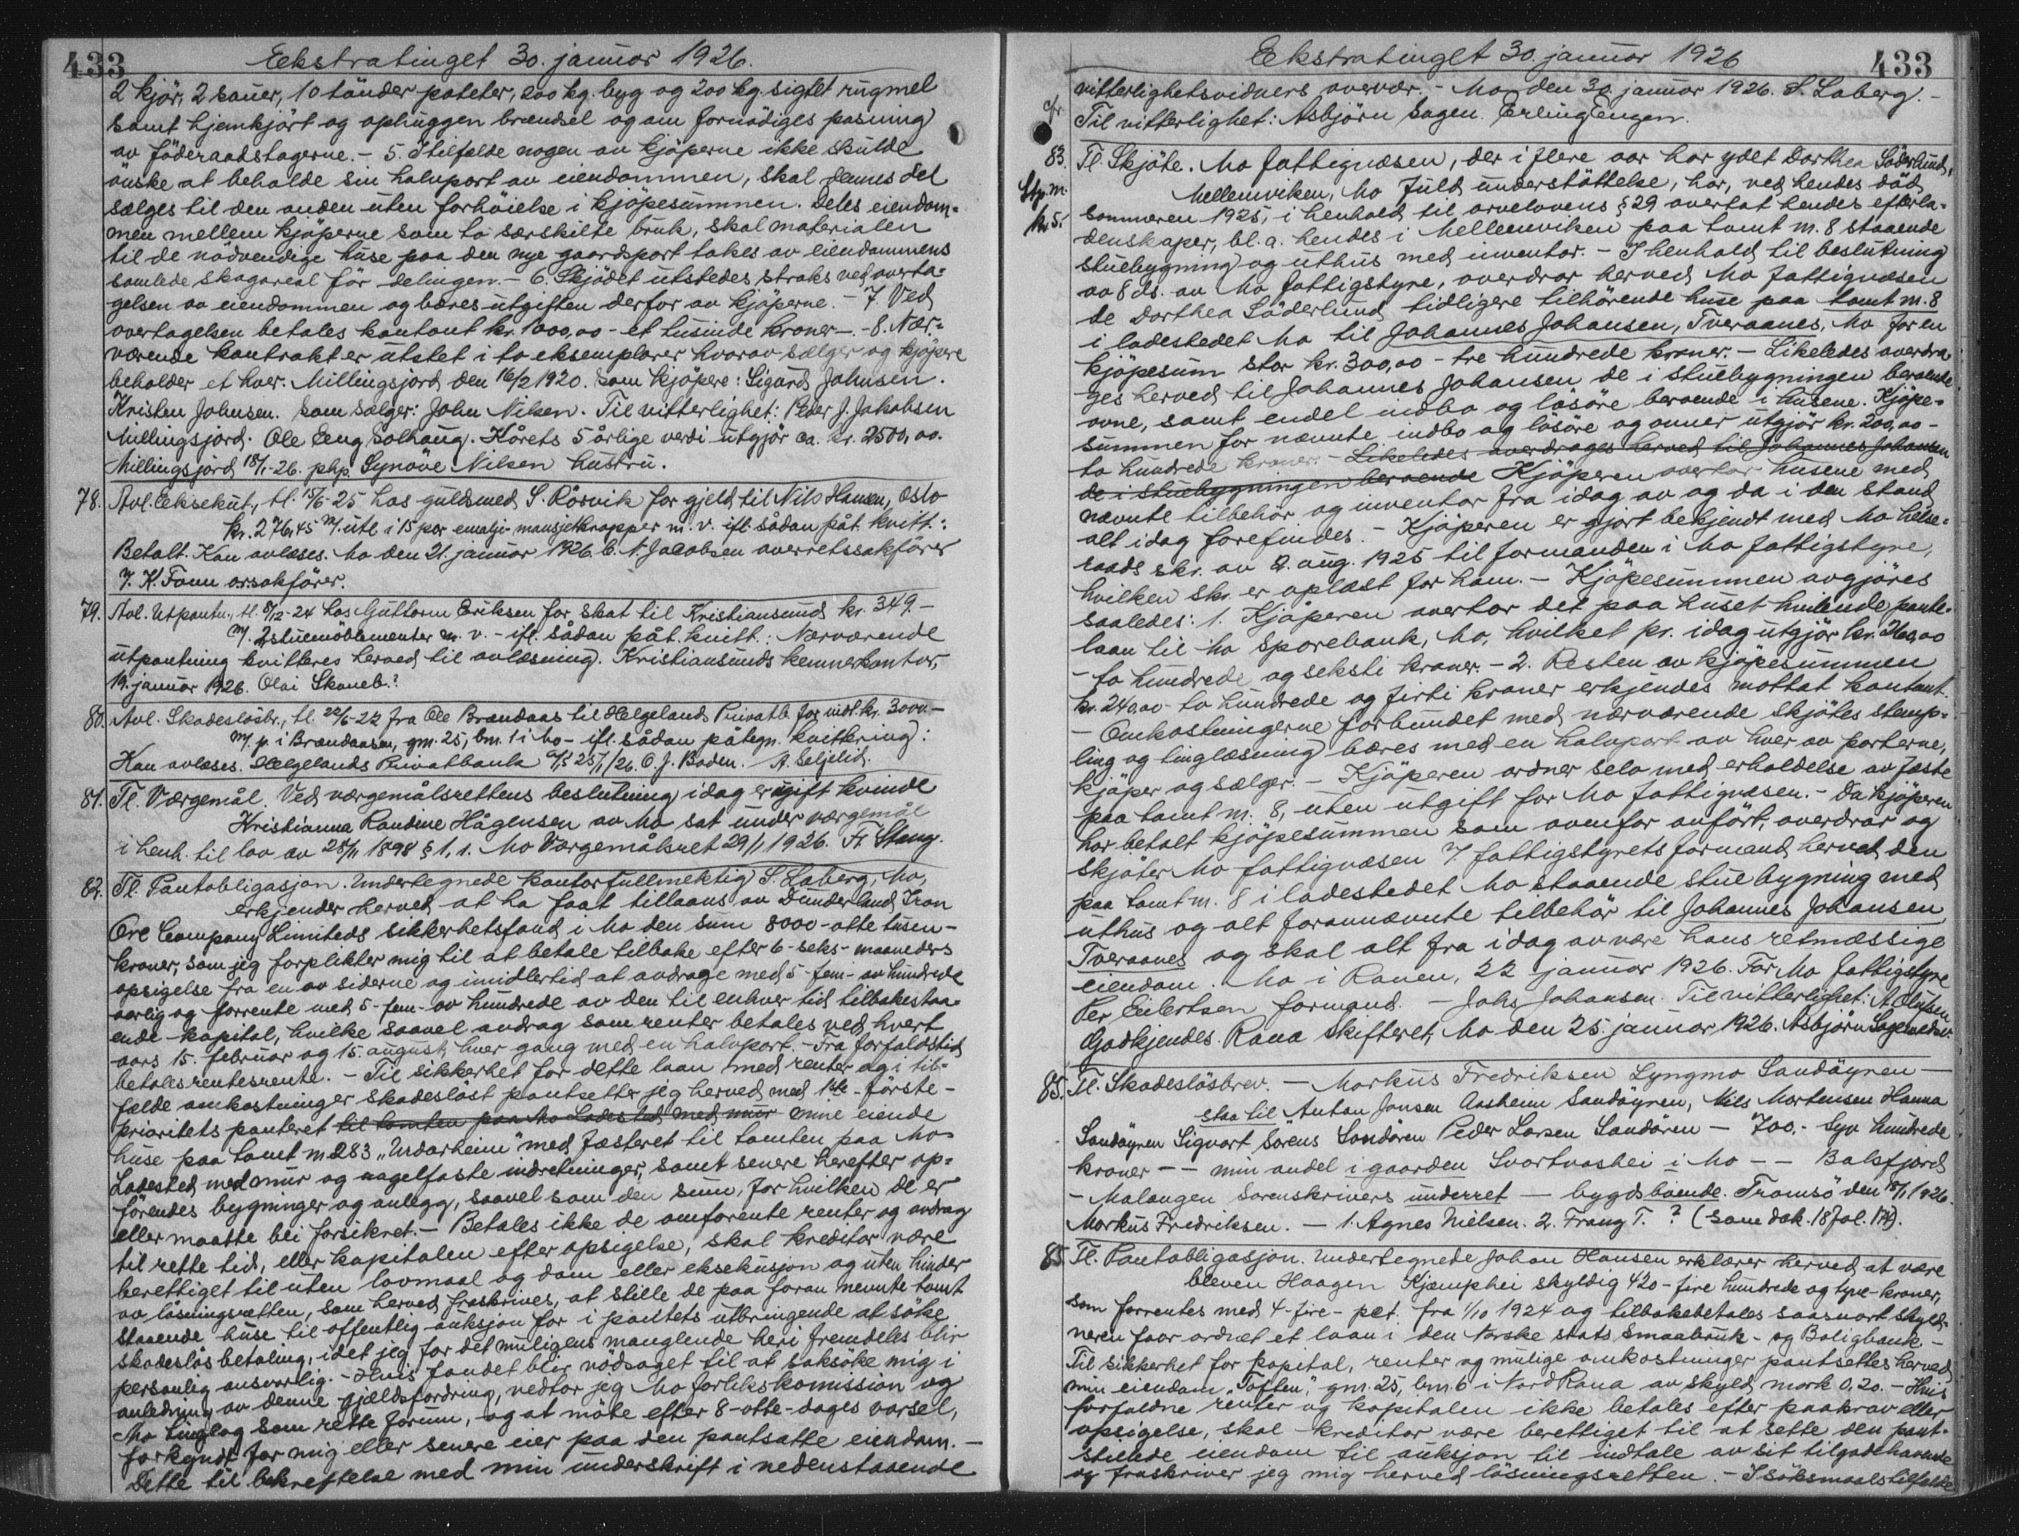 433
Ekstratinget 30. januar 1926.
2 kjör, 2 sauer, 10 tönder poteter, 200 kg. byg og 200 kg. sigtet rugmel
samt hjemkjört og ophuggen brændsel og om fornödiges pasning
av föderaadstagerne. - 5. I tilfælde nogen av kjöperne ikke skulde
önske at beholde sin halvpart av eiendommen, skal dennes del
sælges til den anden uten forhöielse i kjöpesummen. Deles eiendom=
men mellem kjöperne som to særskilte bruk, skal materialen
til de nödvendige huse paa den nye gaardspart takes av eiendommens
samlede skogareal för delingen. - 6. Skjödet utstedes straks ved overta=
gelsen av eiendommen og bæres utgiften derfor av kjöperne. - 7. Ved
overtagelsen betales kontant kr. 1000,00 - et tusinde kroner -. - 8. Nær=
værende kontrakt er utstet i to eksemplarer hvorav sælger og kjöpere
beholder et hver. Millingsjord den 16/2 1920. Som kjöpere: Sigurd Johnsen.
Kristen Johnsen. Som sælger: John Nilsen. Til vitterlighet: Peder J. Jakobsen
Millingsjord. Ole Eeng Solhaug. Kårets 5 årlige verdi utgjör ca. kr. 2500,00.
Millingsjord 18/1-26. php. Synöve Nilsen hustru.
78. Avl. Eksekut., tl. 15/6-25 hos guldsmed S. Rösvik for gjeld til Nils Hansen, Oslo
kr. 276,45 m/. utl. i 15 par emalje mansjetknapper m. v. ifl. sådan påt. kvitt.:
Betalt. Kan avlæses. Mo den 21. januar 1926. C. N. Jacobsen overretssakförer
v. K. Fonn o.r.sakförer.
79. Avl. Utpantn., tl. 8/12-24 hos Guttorm Eriksen for skat til Kristiansund kr. 349.-
m/. 2 stuemöblementer m. v. - ifl. sådan påt. kvitt.: Nærværende
utpantning kvitteres herved til avlæsning. Kristiansunds kemnerkontor,
19. januar 1926. Olai Skaneb.?
80. Avl. Skadeslösbr., tl. 22/6-22 fra Ole Brændaas til Helgelands Privatb. for indt. kr. 3000.-
m/. p. i Brændaasen, gm. 25, bm. 1 i Mo - ifl. sådan påtegn. kvittering:
Kan avlæses. Helgelands Privatbank A/S 25/1/26. O. J. Boden. A. Seljelid.
81. Tl. Værgemål. Ved værgemålsrettens beslutning idag er ugift kvinde
Kristianna Randine Hågensen av Mo sat under værgemål
i henh. til lov av 28/11 1898 § 1, 1. Mo Værgemålsret 29/1 1926. Fr. Stang.
82. Tl. Pantobligasjon. Undertegnede kontorfullmektig S. Laberg, Mo,
erkjender herved at ha faat tillaans av Dunderland Iron
Ore Company Limiteds sikkerhetsfond i Mo den sum 8000 - otte tusen -
kroner, som jeg forplikter mig til at betale tilbake efter 6 - seks - maaneders
opsigelse fra en av siderne og imidlertid at avdrage med 5 - fem - av hundrede
aarlig og forrente med 5 - fem - av hundrede av den til enhver tid tilbakestaa=
ende kapital, hvilke saavel avdrag som renter betales ved hvert
aars 15. februar og 15. august, hver gang med en halvpart. - Fra forfaldstid
betales rentesrente. - Til sikkerhet for dette laan med renter og i til=
fælde omkostninger skadeslöst pantsetter jeg herved med 1ste - förste -
prioritets panteret til tomten paa Mo Ladested med mur mine eiende
huse paa tomt nr. 283 "Udarheim" med fæsteret til tomten paa Mo
Ladested med mur og nagelfaste indretninger, samt senere herefter op=
förendes bygninger og anlegg, saavel som den sum, for hvilken de er
eller maatte bli forsikret. - Betales ikke de omforente renter og avdrag
til rette tid, eller kapitalen efter opsigelse, skal kreditor være
berettiget til uten lovmaal og dom eller eksekusjon og uten hinder
av lösningsretten, som herved fraskrives, at stille de paa foran nevnte tomt
staaende huse til offentlig auksjon for i pantets utbringende at söke
skadeslös betaling, idet jeg for det muligens manglende heri fremdeles blir
personlig ansvarlig. - Hvis fondet blir nödsaget til at saksöke mig i
anledning av denne gjældsfordring, vedtar jeg Mo forlikskomission og
Mo tinglag som rette forum, og at möte efter 8 - otte - dages varsel,
forkyndt for mig eller senere eier paa den pantsatte eiendom. -
Dette til bekreftelse med min underskrift i nedenstaaende
433
Ekstratinget 30. januar 1926
vitterlighetsvidners overvær. - Mo den 30. januar 1926. S. Laberg. -
Til vitterlighet: Asbjörn Sagen. Erling Engen.
83. Tl. Skjöte. Mo fattigvæsen, der i flere aar har ydet Dorthea Söderlund,
Stp. m. Mellemviken, Mo fuld understöttelse, har, ved hendes död
kr. 5. sommeren 1925, i henhold til arvelovens § 29 overtat hendes efterla=
denskaper, bl. a. hendes i Mellemviken paa tomt nr. 8 staaende
stuebygning og uthus med inventar. - I henhold til beslutning
av 8 ds. av Mo fattigstyre, overdrar herved Mo fattigvæsen
de Dorthea Söderlund tidligere tilhörende huse paa tomt nr. 8
i ladestedet Mo til Johannes Johansen, Tveraanes, Mo for en
kjöpesum stor kr. 300,00 - tre hundrede kroner. - Likeledes overdra
ges herved til Johannes Johansen de i stuebygningen beroende
ovne, samt endel indbo og lösöre beroende i husene. Kjöpe=
summen for nævnte indbo og lösöre og ovner utgjör kr. 200,00 -
to hundrede kroner. - Likeledes overdrages herved til Johannes Johansen
de i stuebygningen beroende Kjöperen overtar husene med
nævnte tilbehör og inventar fra idag av og da i den stand
alt idag forefindes. - Kjöperen er gjort bekjendt med Mo helse=
raads skr. av 2. aug. 1925 til formanden i Mo fattigstyre,
hvilken skr. er oplæst for ham. - Kjöpesummen avgjöres
saaledes: 1. Kjöperen overtar det paa huset hvilende pante=
laan til Mo Sparebank, Mo, hvilket pr. idag utgjör kr. 260,00
- to hundrede og seksti kroner. - 2. Resten av kjöpesummen
kr. 240,00 - to hundrede og firti kroner erkjendes mottat kontant.
- Omkostningerne forbundet med nærværende skjötes stemp=
ling og tinglæsning bæres med en halvpart av hver av parterne,
kjöper og sælger. - Kjöperen ordner selv med erholdelse av fæste
paa tomt nr. 8, uten utgift for Mo fattigvæsen. - Da kjöperen
har betalt kjöpesummen som ovenfor anfört, overdrar og
skjöter Mo fattigvæsen v. fattigstyrets formand herved den
paa tomt nr. 8 i ladestedet Mo staaende stuebygning med
uthus og alt forannævnte tilbehör til Johannes Johansen,
Tveraanes og skal alt fra idag av være hans retmæssige
eiendom. Mo i Ranen, 22 januar 1926. For Mo fattigstyre
Per Eilertsen formand. - Johs Johansen. Til vitterlighet: A. Olufsen
Godkjendes. Rana skifteret, Mo den 25. januar 1926. Asbjörn Sagen
85. Tl. Skadeslösbrev. - Markus Fredriksen Lyngmo Sandöyren -
staa til Anton Jonsen Aasheim Sandöyren, Nils Mortensen Hanna
Sandöyren Sigvart Sörens Sandören Peder Larsen Sandören - 700.- Syv hundrede
kroner - - min andel i gaarden Svortvashei i Mo - - Balsfjord
- Malangen Sorenskrivers underret - bygdsboende. Tromsö den 18/1 1926.
Markus Fredriksen. - 1. Agnes Nielsen. 2. Frang T. ? (Same dok. 18 fol. 174).
85 Tl. Pantobligasjon. Undertegnede Johan Hansen erklærer herved at være
bleven Haagen Kjæmphei skyldig 420 - fire hundrede og tyve - kroner,
som forrentes med 4 - fire - pct. fra 1/10 1924 og tilbakebetales saasnart skyld=
neren faar ordnet et laan i den Norske stats Smaabruk- og Boligbank -
Til sikkerhet for kapital, renter og mulige omkostninger pantsettes herved
min eiendom "Toften", gm. 25, bm. 6 i Nord Rana av skyld mark 0,20. - Hvis
forfaldne renter og kapitalen ikke betales efter paakrav eller
opsigelse, skal kreditor være berettiget til at sette den pant=
stillede eiendom til auksjon til indtale av sit tilgodehavende
og fraskriver jeg mig herved lösningsretten. - I söksmaalstilfælde